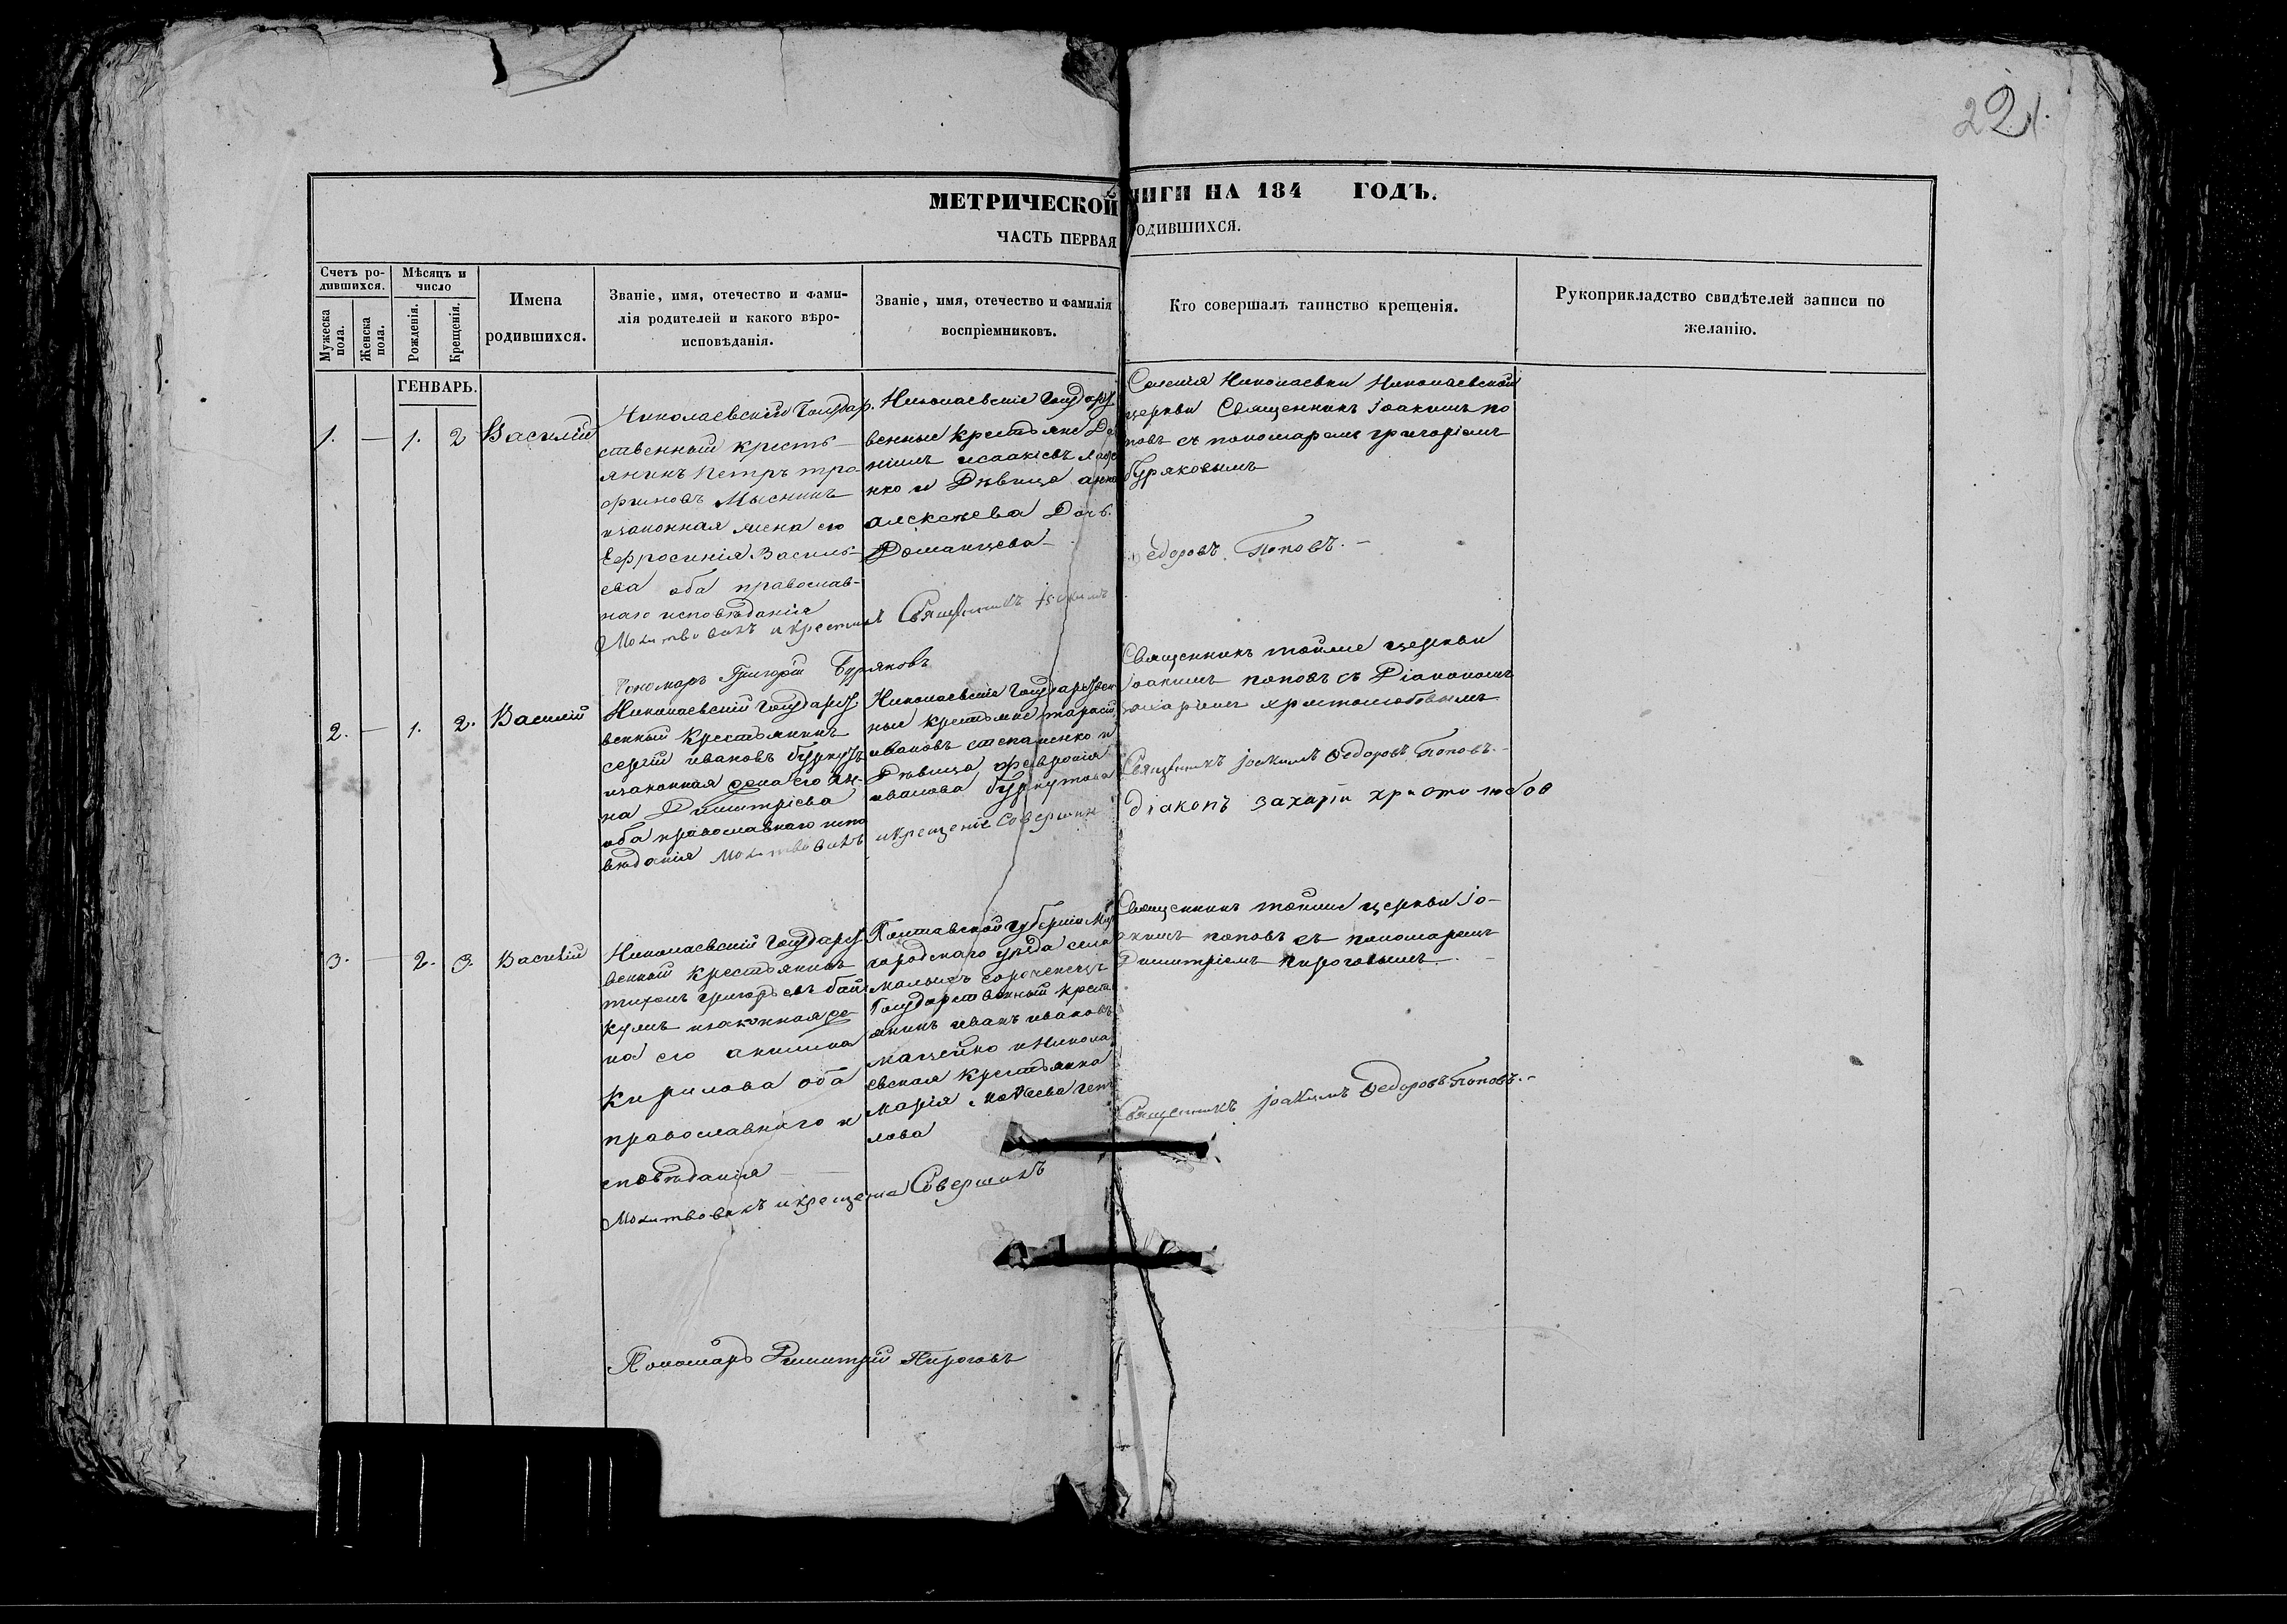 221.
МЕТРИЧЕСКОЙ НИГИ НА 184 ГОДЪ.
ЧАСТЬ ПЕРВАЯ ОДИВШИХСЯ.
Счетъ ро-
дившихся.
Мужеска пола.
Женска пола.
Мѣсяцъ и
число
Рожденія.
Крещенія.
Имена
родившихся.
Званіе, имя, отечество и фами-
лія родителей и какого вѣро-
исповѣданія.
Званіе, имя, отечество и фамилія
воспріемниковъ.
Кто совершалъ таинство крещенія.
Рукоприкладство свидѣтелей записи по
желанію.
ГЕНВАРЬ.
1. — 1. 2 Василій
Николаевскій Государ.
ственный кресть-
янинъ Петръ тро-
фимовъ Мысникъ
изаконная жена его
Ефросинія Василь-
ева оба православ-
наго исповѣданія
Николаевскіе Государ
венные крестьяне
исаакіевъ
нко и Дѣвица анна
алексѣева Дочь.
Романцева
Селенія Николаевки Николаевской
церкви Священникъ Іоакимъ по
повъ съ пономаремъ григоріемъ
буряковымъ
Молитвовалъ и крестилъ Священникъ Іоакимъ
Федоровъ Поповъ.—
Пономарь Григорій Буряковъ
2. — 1. 2. Василій
Николаевскій Государст
венный Крестьянинъ
сергій ивановъ
изаконная жена его Ан-
на Димитріева
оба православнаго испо
вѣданія
Николаевскіе Государствен
ные крестьяне тарасій
ивановъ степаненко и
Дѣвица февронія
иванова буркутова
Священникъ тойже церкви
Іоакимъ поповъ съ Діакономъ
захаріемъ христолюбовымъ
Молитвовалъ и крещеніе Совершилъ
Священникъ Іоакимъ Федоровъ Поповъ.—
Діаконъ Захарій христолюбов
3. — 2. 3. Василій
Николаевскій Государст
венный Крестьянинъ
тихонъ григорьевъ бай
кумъ изаконная же-
на его акилина
Кирилова оба
православнаго и
сповѣданія
Полтавской губерніи Мир
городскаго уѣзда села
малыхъ сороченецъ
Государственный крест
янинъ иванъ ивановъ
мацейко и Никола
евская Крестьянка
Марія
лова
Священникъ тойже церкви Іо-
акимъ поповъ съ пономаремъ
Димитріемъ Пироговымъ.
Молитвовалъ и крещеніе Совершилъ
Священникъ Іоакимъ Федоровъ Поповъ.—
Пономарь Димитрій Пироговъ